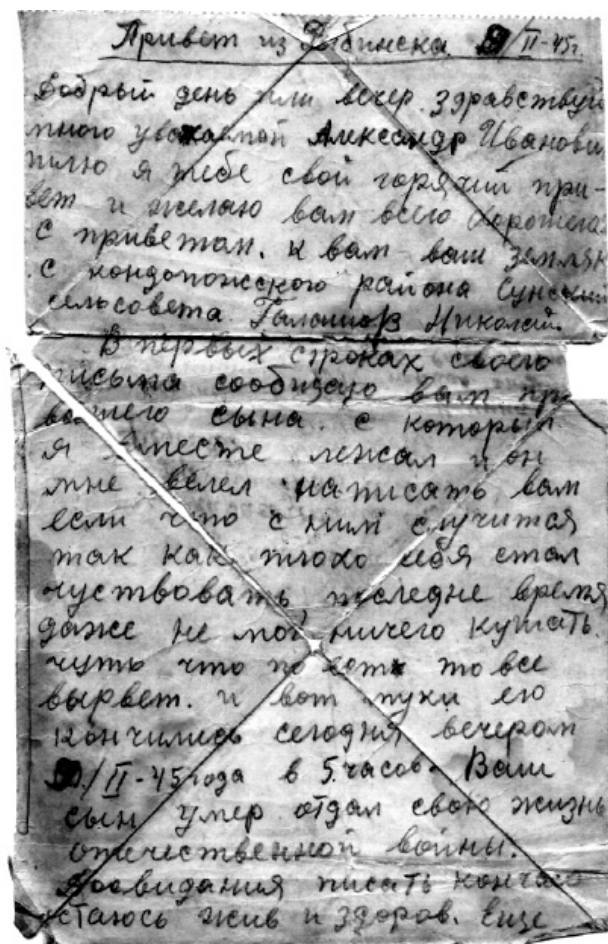 Привет из Рыбинска. 9/II-45г.
Добрый день или вечер. здравствуй
много уважаемой Александр Иванович
шлю я тебе свой горячий при-
вет и желаю вам всего хорошега
с приветам. к вам ваш земляк
с кондопожского района Сунский
сельсовета. Галашов Николай.
В первых строках своего
письма сообщаю вам пр
вашего сына. с которым
я вместе лежал и он
мне велел написать вам
если что с ним случится
так как плохо себя стал
чуствовать последне время
даже не мог ничего кушать.
чуть что поест то все
вырвет. и вот муки его
кончились сегодня вечером
/II-45 года в 5. часов. Ваш
сын умер отдал свою жизнь
отечественной войны.
Досвидания писать кончаю
стаюсь жив и здоров. Еще